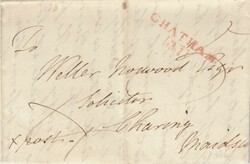 CHATHAM
To
Weller Norwood Esqr
Solicitor
x post Charing